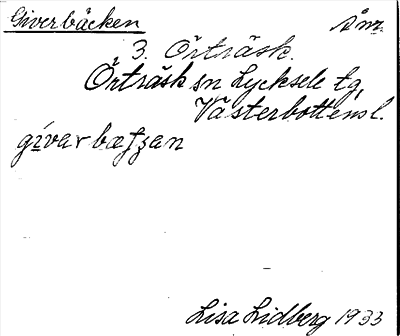 Giverbäcken Ånz.
3. Örträsk.
Örträsk sn Lycksele tg,
Västerbottensl.
gívarbæʃʒan
Lisa Lidberg 1933